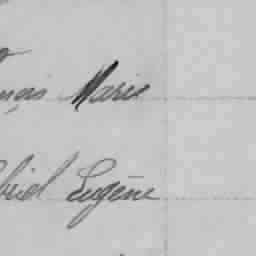 nçois Marie
briel Eugène